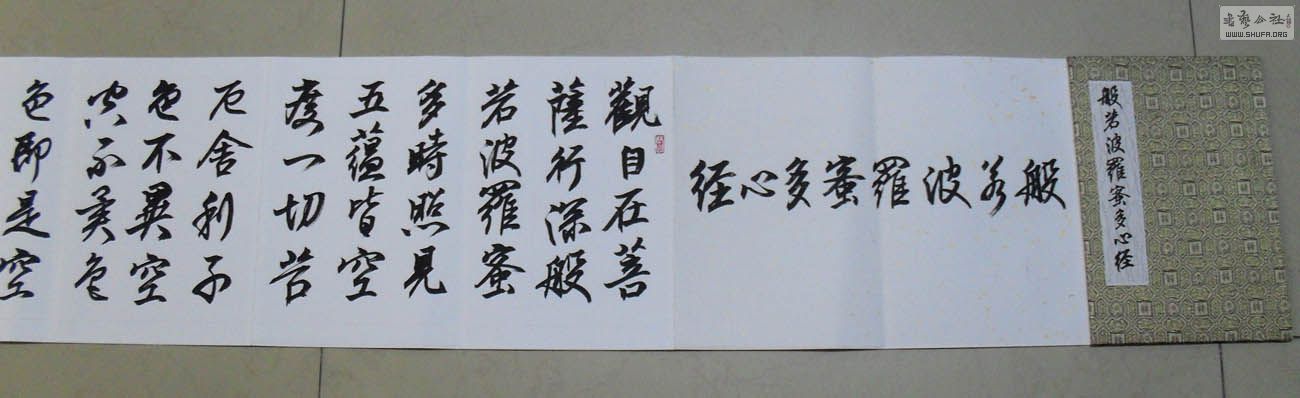 般若波羅蜜多心经
般若波羅蜜多心经
觀自在菩
薩行深般
若波羅蜜
多時照見
五蕴皆空
度一切苦
厄舍利子
色不異空
空不異色
色即是空
书艺公社
WWW.SHUFA.ORG